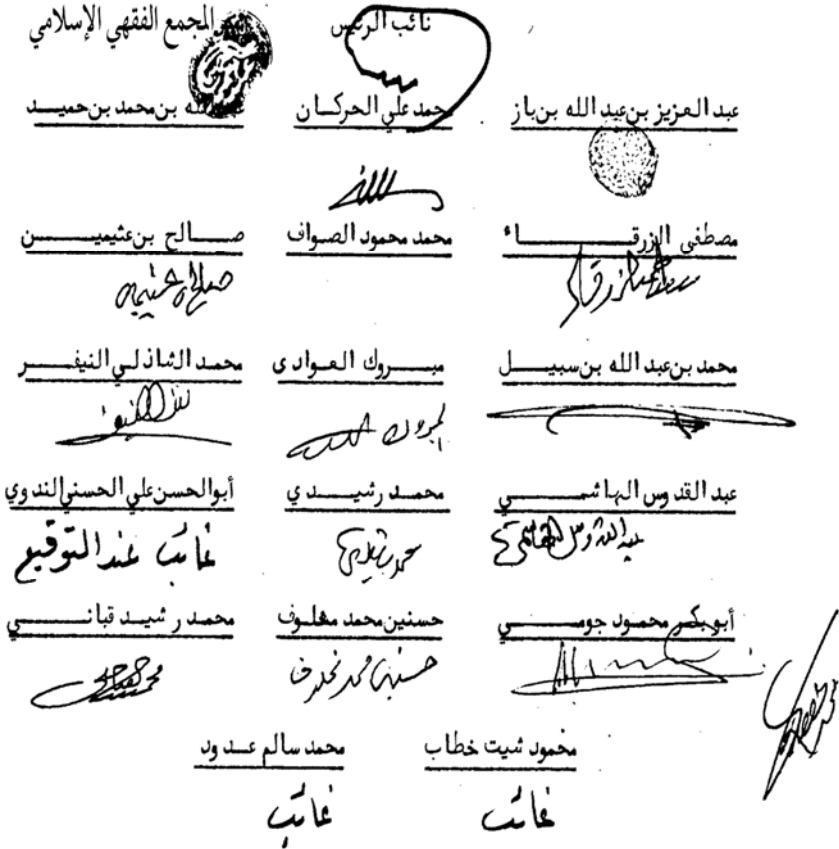 نائب الرئيس المجمع الفقهي الإسلامي
عبد العزيز بن عبد الله بن باز محمد علي الحركان عبد الله بن محمد بن حميد
مصطفى الزرقاء محمد محمود الصواف صالح بن عثيمين
صالح عثيمين
محمد بن عبد الله بن سبيل مبروك العوادى محمد الشاذلي النيفر
مبروك
عبد القدوس الهاشمي محمد رشيدي أبو الحسن علي الحسني الندوي
غائب عند التوقيع
أبو بكر محمود جومي حسنين محمد مخلوف محمد رشيد قباني
حسنين محمد مخلوف
محمود شيت خطاب محمد سالم عدود
غائب غائب